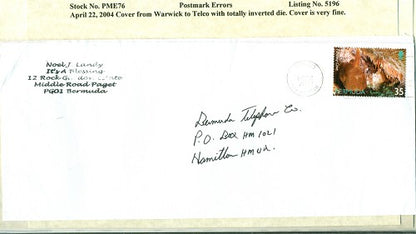 Stock No. PME76 Postmark Errors Listing No. 5196
April 22, 2004 Cover from Warwick to Telco with totally inverted die. Cover is very fine.
Noel J Landy
It's A Blessing
12 Rock G
Middle Road Paget
PG01 Bermuda
35
Bermuda Telephone Co.
P.O. Box HM 1021
Hamilton HM